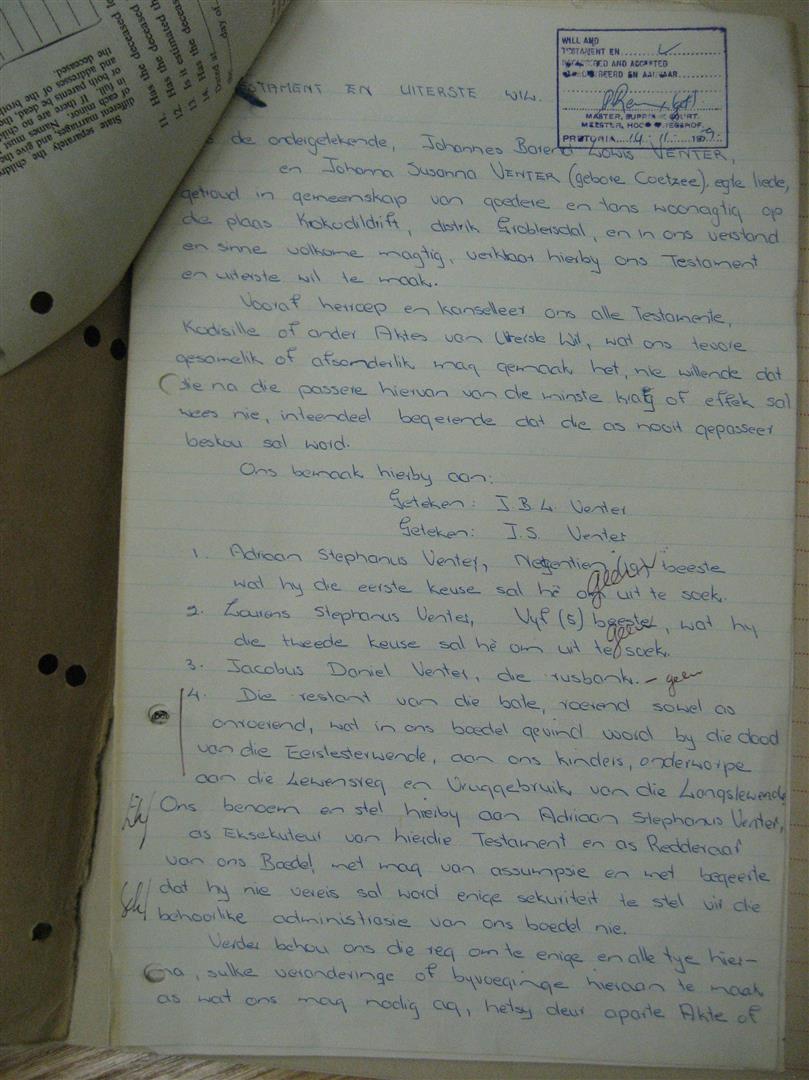 State separately the childre
different marriages, and give the
of each. Names must
in full. If there are no chi
or both are dead,
and addresses of the brot
the deceased.
11. Has the deceased
12. Has the deceased
13. Is it estimated th
14. Has the deceas
Dated at
day of
WILL AND
TESTAMENT EN
REGISTERED AND ACCEPTED
GEREGISTREERD EN AANVAAR
MASTER, SUPREME COURT.
MEESTER, HOOGGEREGSHOF.
PRETORIA 14. 11.
TESTAMENT EN UITERSTE WIL.
de ondergetekende, Johannes Barend Lowis VENTER,
en Johanna Susanna VENTER (gebore Coetzee), egte liede,
getroud in gemeenskap van goedere en tans woonagtig op
die plaas Krokodildrift, distrik Groblersdal, en in ons verstand
en sinne volkome magtig, verklaar hierby ons Testament
en uiterste wil te maak.
Vooraf herroep en kanselleer ons alle Testamente,
Kodisille of ander Aktes van Uiterste Wil, wat ons tevore
gesamelik of afsonderlik mag gemaak het, nie willende dat
die na die passere hiervan van die minste krag of effek sal
wees nie, inteendeel begerende dat die as nooit gepasseer
beskou sal word.
Ons bemaak hierby aan:
Geteken: J.B.L. Venter
Geteken: J.S. Venter
1. Adriaan Stephanus Venter, Negentien beeste
wat hy die eerste keuse sal hê om uit te soek.
2. Lourens Stephanus Venter, Vyf (5) beeste, wat hy
geen
die tweede keuse sal hê om uit te soek.
3. Jacobus Daniel Venter, die rusbank. - geen
4. Die restant van die bate, roerend sowel as
onroerend, wat in ons boedel gevind word by die dood
van die Eerslesterwende, aan ons kinders, onderworpe
aan die Lewensreg en Vruggebruik van die Langslewende
Ons benoem en stel hierby aan Adriaan Stephanus Venter,
as Eksekuteur van hierdie Testament en as Redderaar
van ons Boedel, met mag van assumpsie en met begeerte
dat hy nie vereis sal word enige sekuriteit te stel vir die
behoorlike administrasie van ons boedel nie.
Verder behou ons die reg om te enige en alle tye hier-
na, sulke veranderinge of byvoeginge hieraan te maak
as wat ons mag nodig ag, hetsy deur aparte Akte of